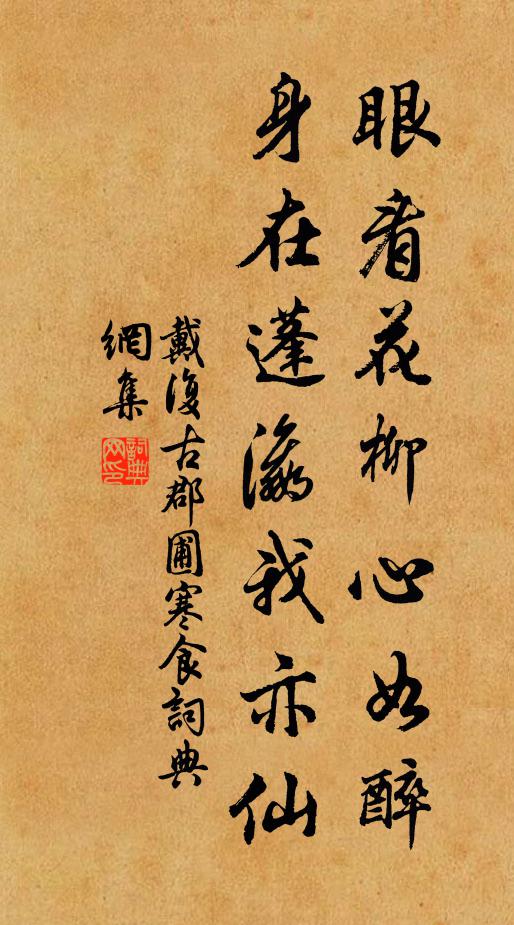 眼看花柳心如醉
身在蓬瀛我亦仙
戴復古郡圃寒食詞典
網集
詞典
网印